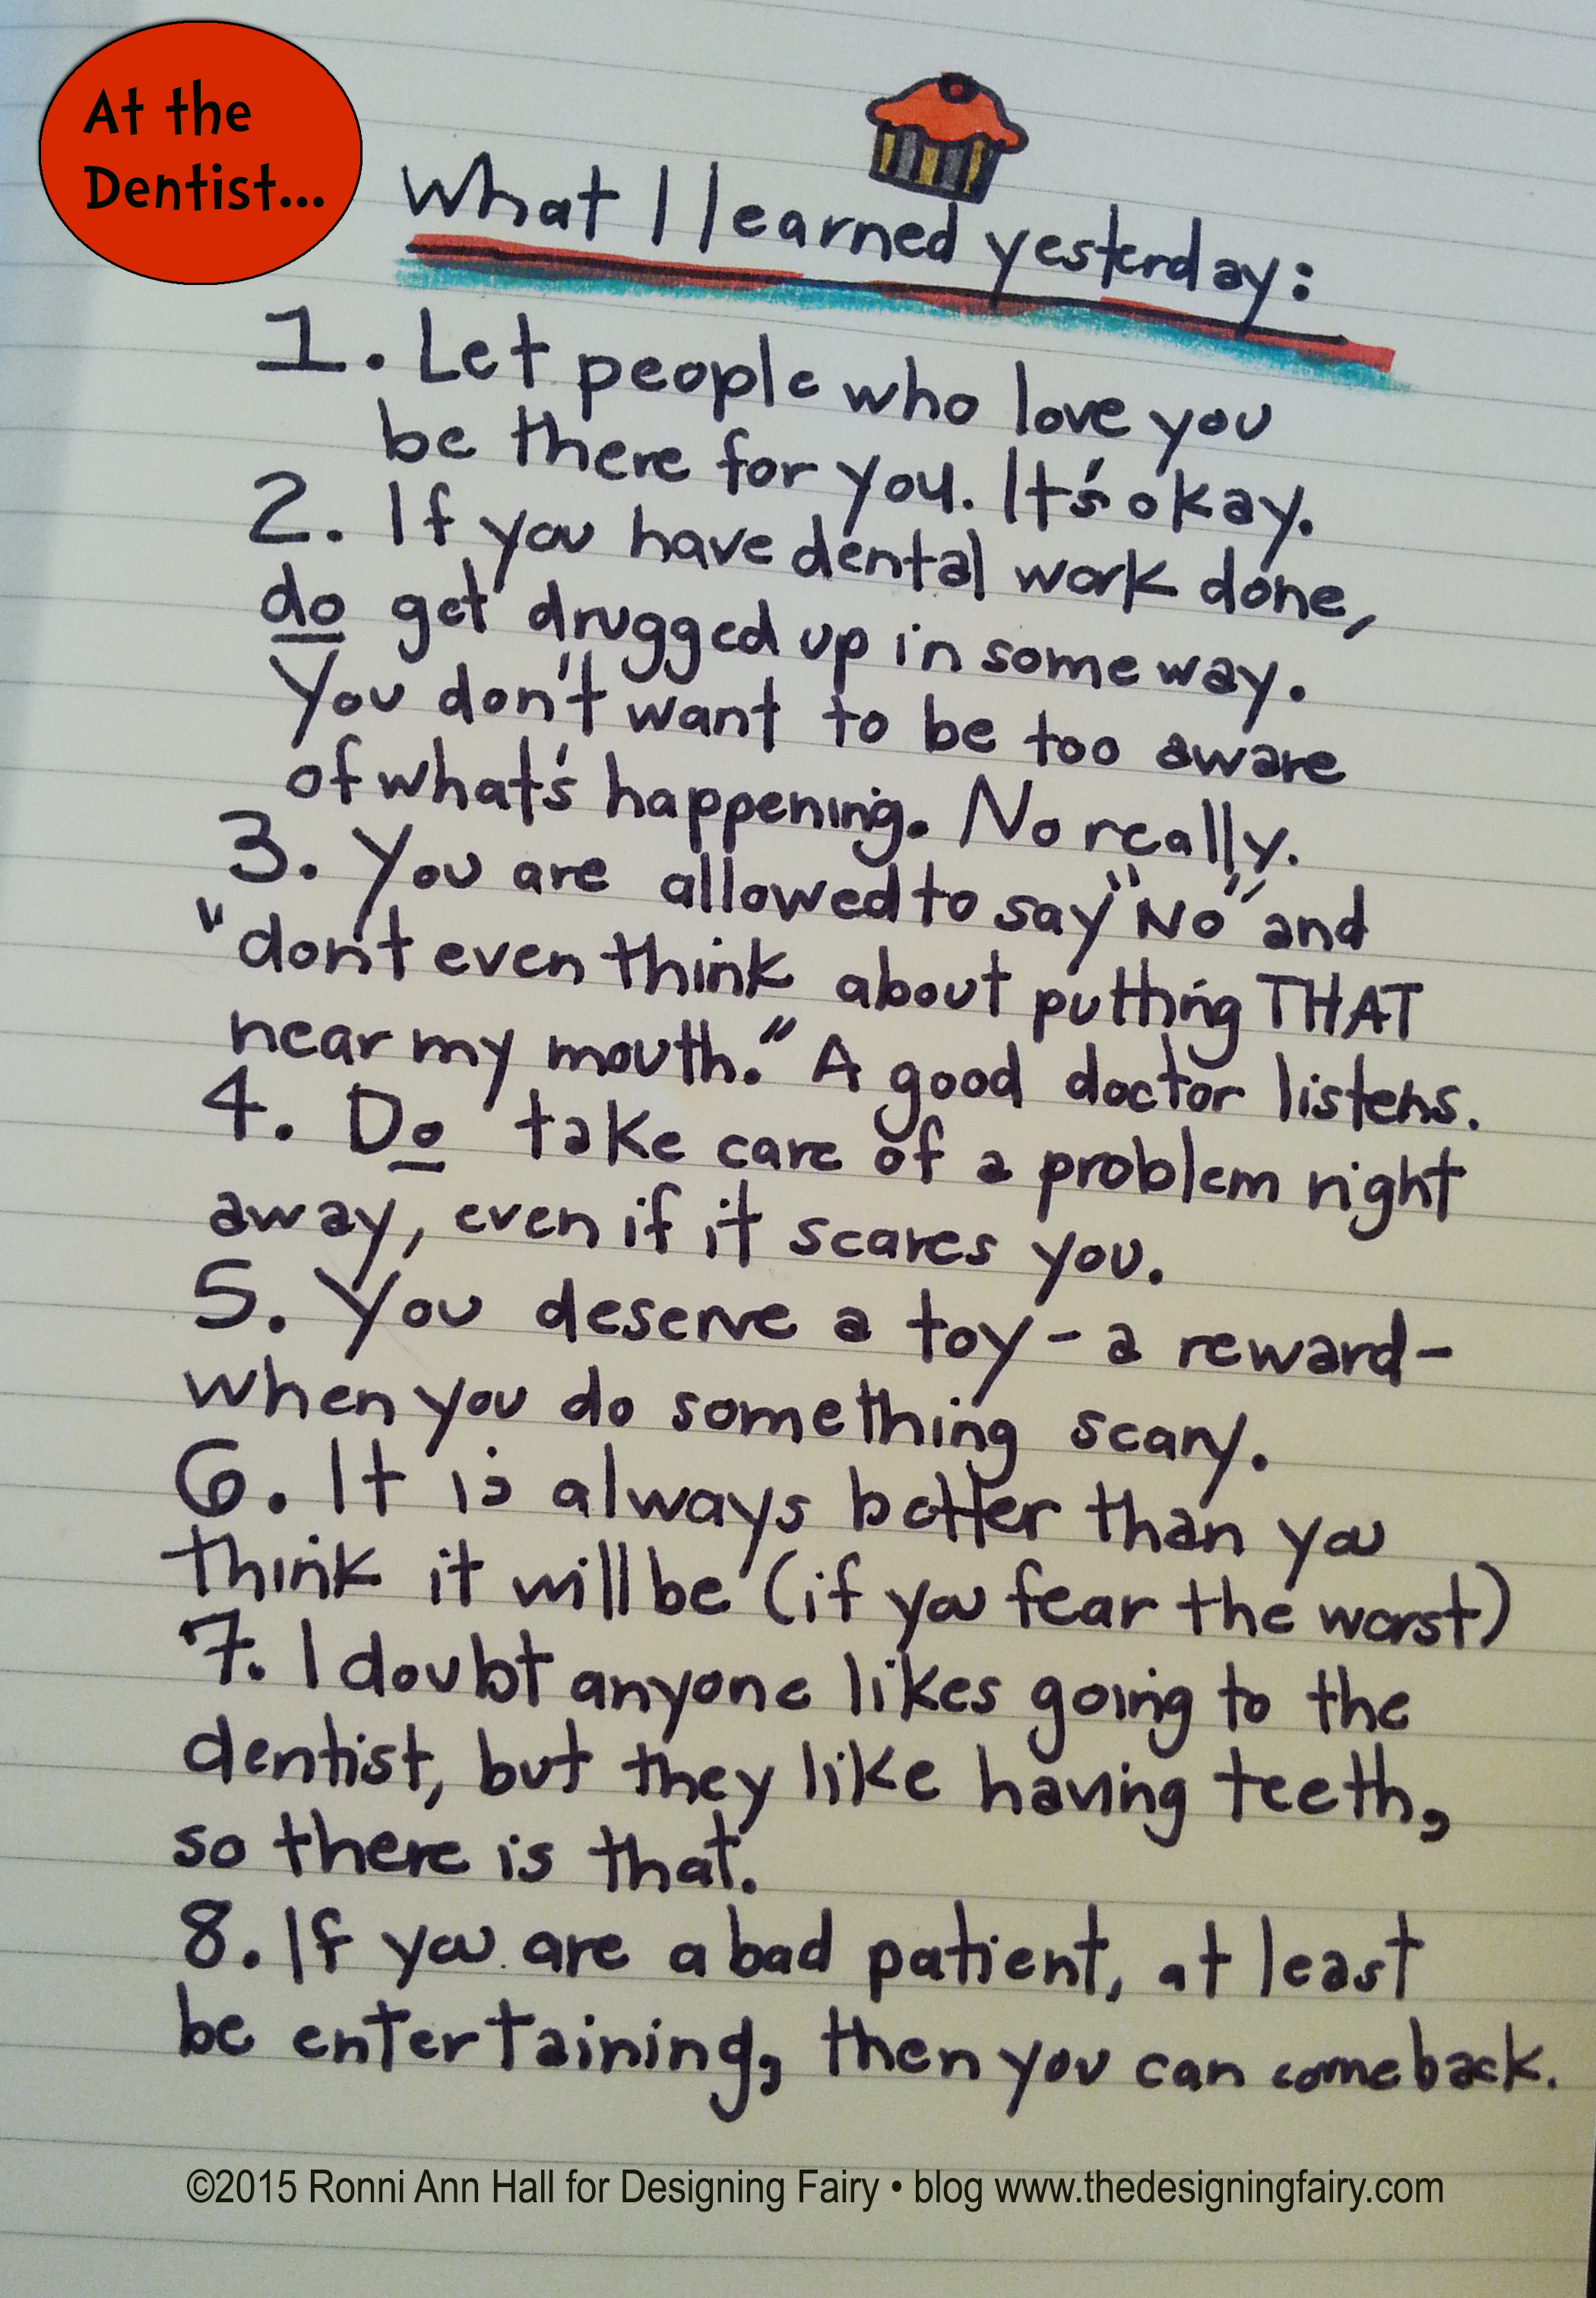 At the
Dentist...
What I learned yesterday:
1. Let people who love you
be there for you. It's okay.
2. If you have dental work done,
do get drugged up in some way.
You don't want to be too aware
of what's happening. No really.
3. You are allowed to say "No" and
"don't even think about putting THAT
near my mouth." A good doctor listens.
4. Do take care of a problem right
away, even if it scares you.
5. You deserve a toy - a reward -
when you do something scary.
6. It is always better than you
think it will be (if you fear the worst)
7. I doubt anyone likes going to the
dentist, but they like having teeth,
so there is that.
8. If you are a bad patient, at least
be entertaining, then you can come back.
©2015 Ronni Ann Hall for Designing Fairy • blog www.thedesigningfairy.com